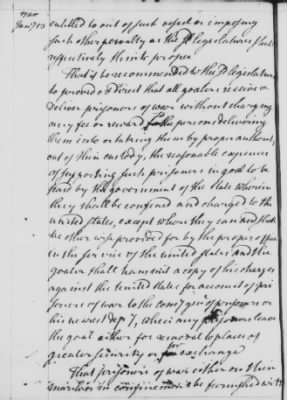 1780
Jany 13
entitled to out of such asset or imposing
such other penalty as the sd legislatures shall
respectively think proper
That it be recommended to the sd legislatures
to provide & direct that all goalers receive &
deliver prisoners of war without charging
any fee or reward for the persons delivering
them into or taking them by proper authority
out of their custody, the reasonable expences
of supporting such prisoners in goal to be
paid by the government of the state wherein
they shall be confined and charged to the
united states, except where they can and shall
be otherwise provided for by the proper officer
in the service of the united states and the
goaler shall transmit a copy of his charges
against the united States for account of pri
soners of war to the comy genl of prisoners or
his nearest depy, when any prisoners leave
the goal either for removal to places of
greater security or for exchange
That prisoners of war either on their
march or in confinement be furnished with